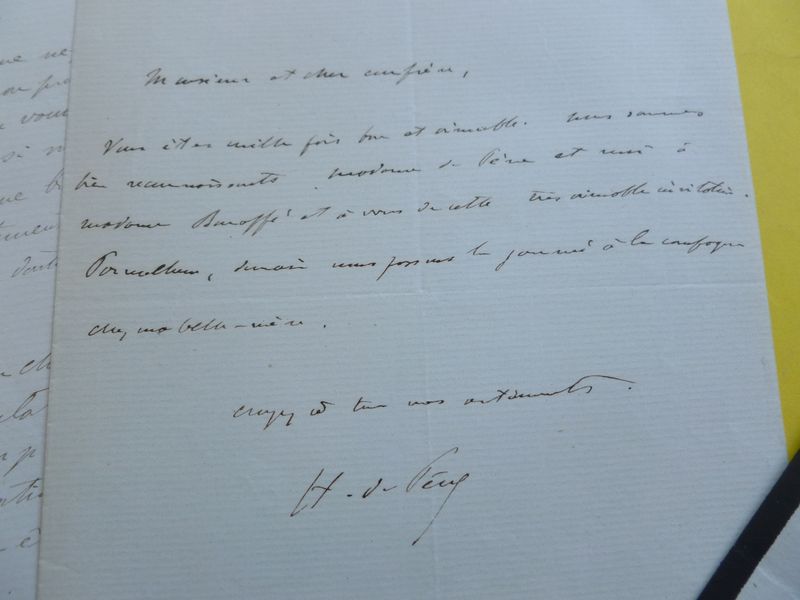 Monsieur et cher confrère,
Vous êtes mille fois bon et aimable. nous sommes
très reconnaissants, madame de Pène et moi à
madame Baroffé et à vous de cette très aimable invitation.
Par malheur, demain nous passons la journée à la campagne
chez ma belle-mère.
croyez à tous mes sentiments.
H. de Pène